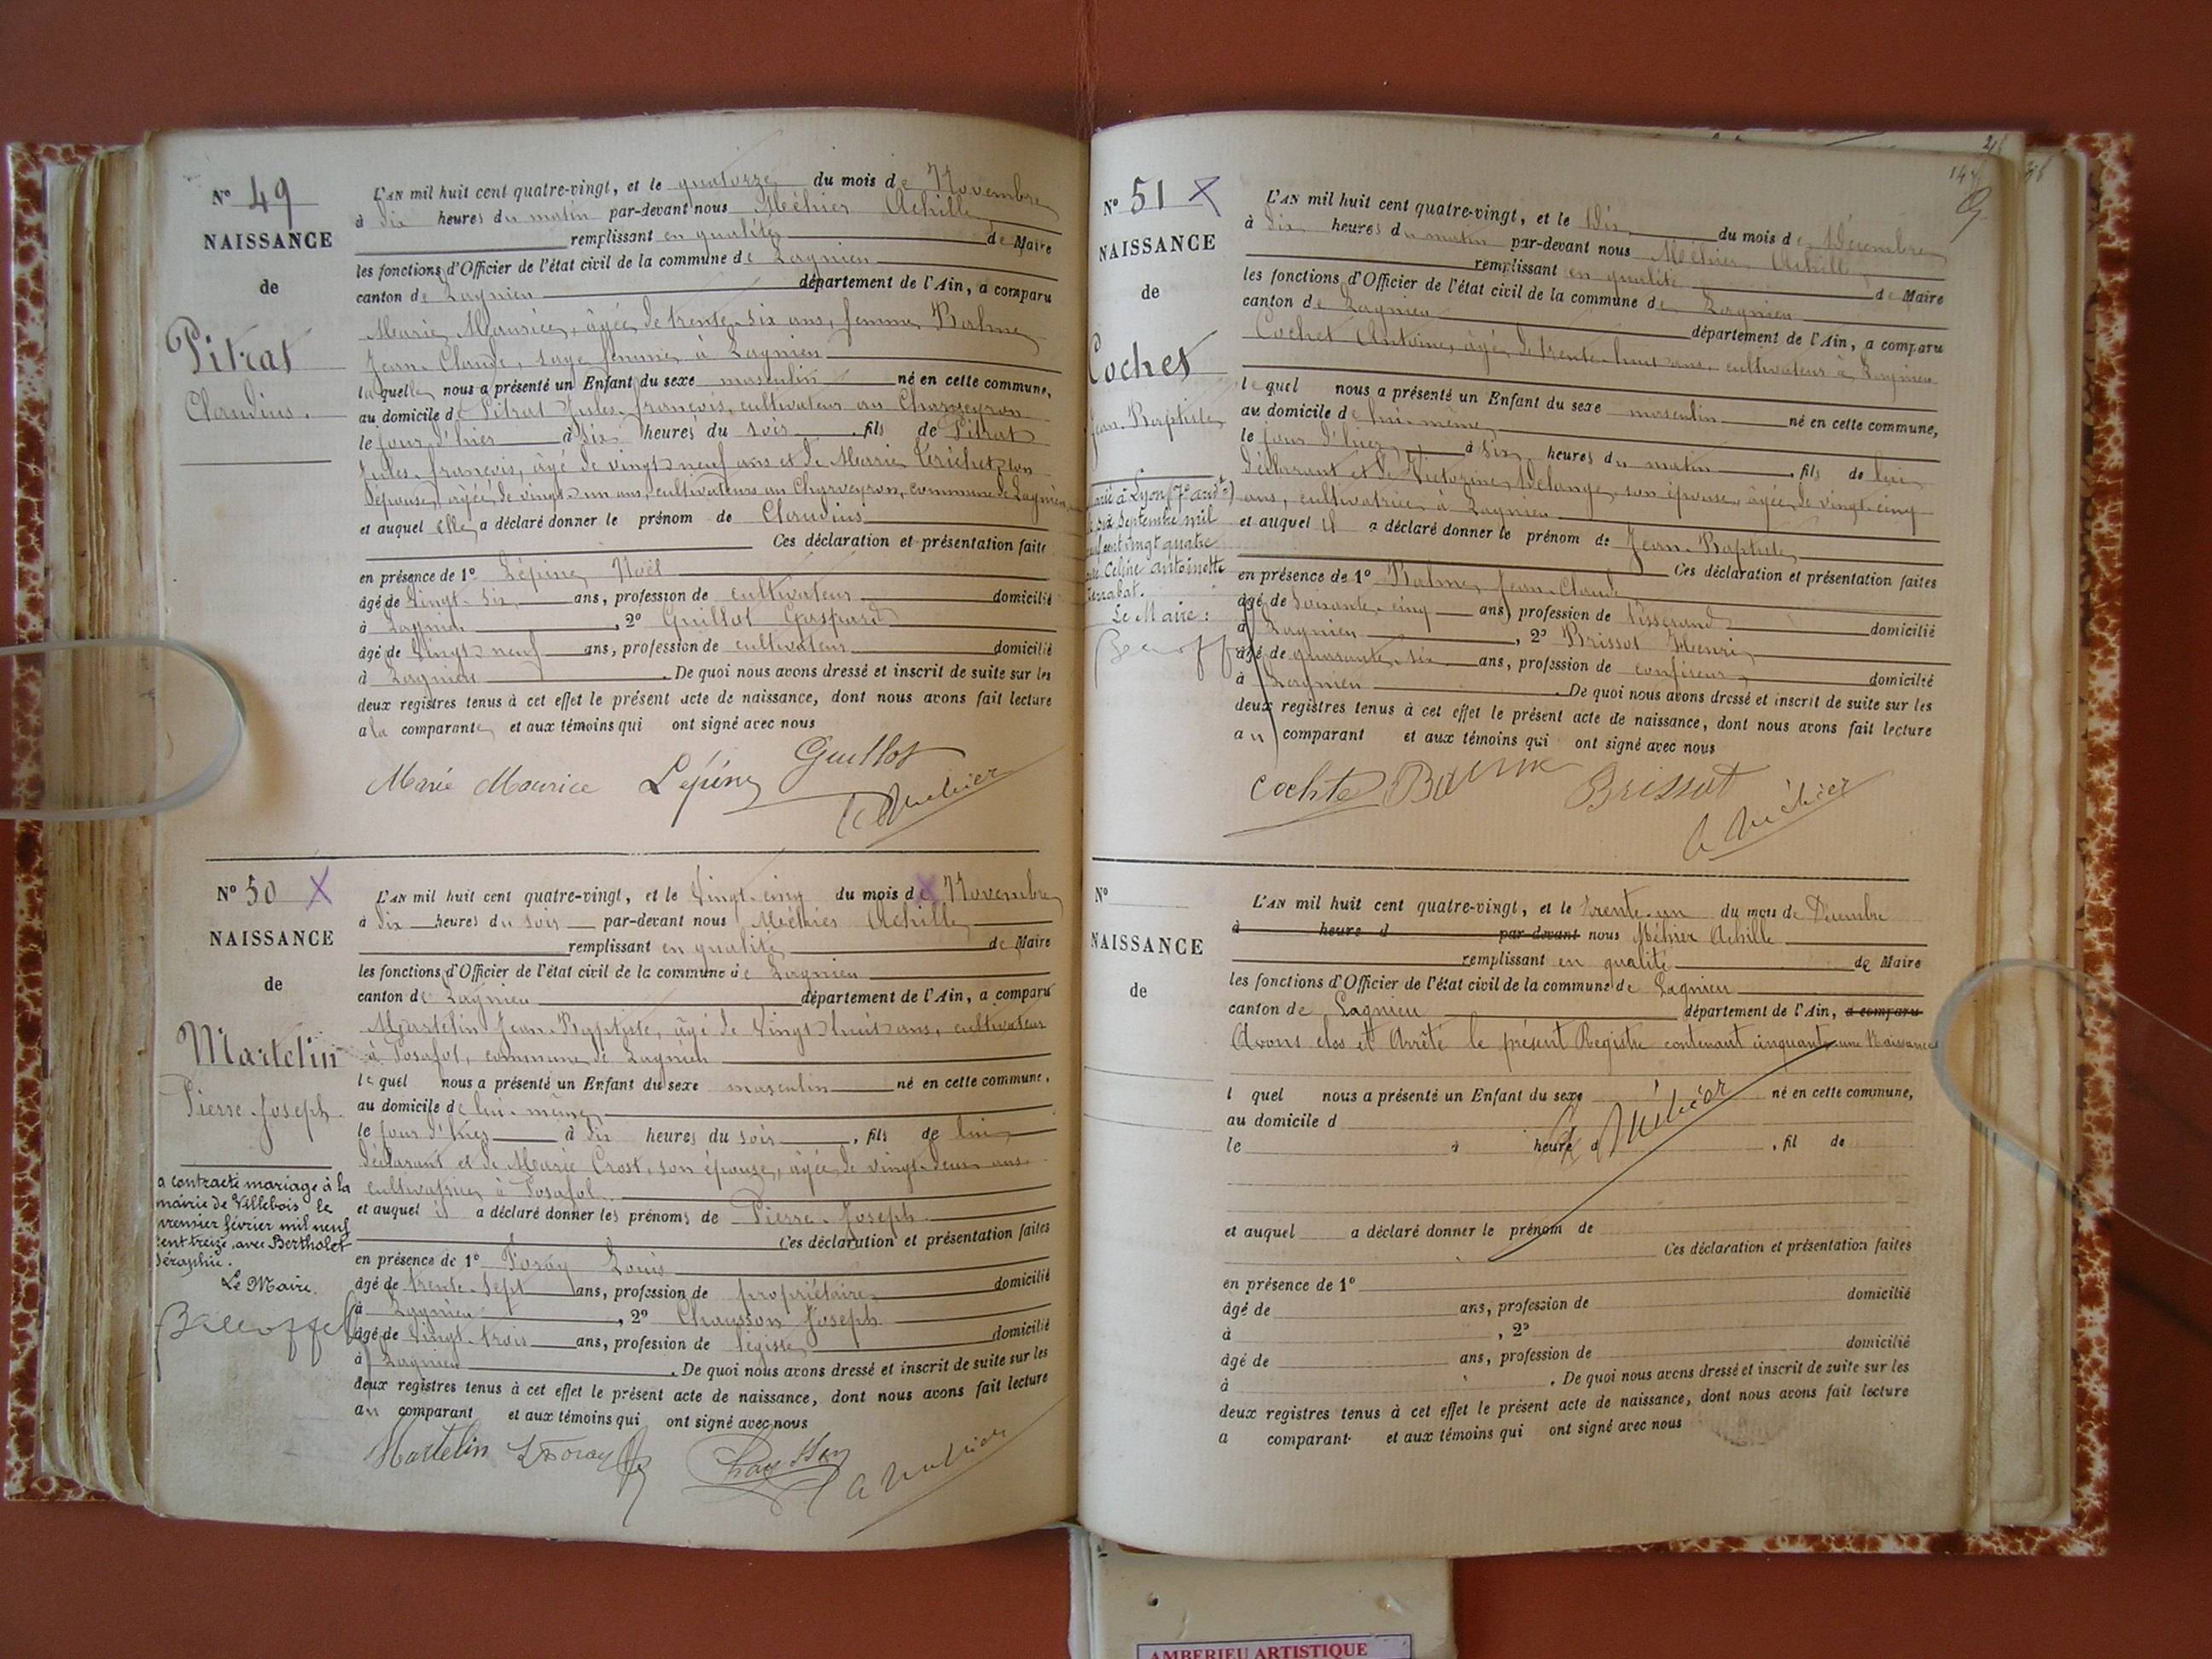 N° 49
NAISSANCE
de
Pitrat
Claudius.
L'AN mil huit cent quatre-vingt, et le quatorze du mois de Novembre
à dix heures du matin par-devant nous Méhier Achille
remplissant en qualité de Maire
les fonctions d'Officier de l'état civil de la commune de Lagnieu
canton de Lagnieu département de l'Ain, a comparu
Marie Maurice, âgée de trente-six ans, femme Balme
Jean-Claude, sage femme à Lagnieu
laquelle nous a présenté un Enfant du sexe masculin né en cette commune,
au domicile de Pitrat Jules-françois, cultivateur au Charveyron
le jour d'hier à dix heures du soir, fils de Pitrat
Jules-françois, âgé de vingt-neuf ans et de Marie Trichet, son
épouse, âgée de vingt-un ans, cultivateurs au Charveyron, commune de Lagnieu
et auquel elle a déclaré donner le prénom de Claudius
Ces déclaration et présentation faite
en présence de 1° Lépine Noël
âgé de vingt-six ans, profession de cultivateur domicilié
à Lagnieu, 2° Guillot Gaspard
âgé de vingt-neuf ans, profession de cultivateur domicilié
à Lagnieu. De quoi nous avons dressé et inscrit de suite sur les
deux registres tenus à cet effet le présent acte de naissance, dont nous avons fait lecture
a la comparante et aux témoins qui ont signé avec nous
Marie Maurice Lépine Guillot
A Méhier
N° 50 X
NAISSANCE
de
Martelin
Pierre-Joseph.
a contracté mariage à la
mairie de Villebois le
premier février mil neuf
cent treize, avec Bertholet
Séraphie.
Le Maire.
L'AN mil huit cent quatre-vingt, et le vingt-cinq du mois de Novembre
à dix heures du soir par-devant nous Méhier Achille
remplissant en qualité de Maire
les fonctions d'Officier de l'état civil de la commune de Lagnieu
canton de Lagnieu département de l'Ain, a comparu
Martelin Jean-Baptiste, âgé de vingt-huit ans, cultivateur
à Posafol, commune de Lagnieu
lequel nous a présenté un Enfant du sexe masculin né en cette commune,
au domicile de lui-même
le jour d'hier à dix heures du soir, fils de lui
déclarant et de Marie Crost, son épouse, âgée de vingt-deux ans
cultivatrice à Posafol.
et auquel il a déclaré donner les prénoms de Pierre-Joseph.
Ces déclaration et présentation faites
en présence de 1° Foray Louis
âgé de trente-sept ans, profession de propriétaire domicilié
à Lagnieu, 2° Chausson Joseph
âgé de vingt-trois ans, profession de légiste domicilié
à Lagnieu. De quoi nous avons dressé et inscrit de suite sur les
deux registres tenus à cet effet le présent acte de naissance, dont nous avons fait lecture
au comparant et aux témoins qui ont signé avec nous
Martelin L Foray Chausson A Méhier
N° 51 X
NAISSANCE
de
Cochet
Jean-Baptiste
Marié à Lyon (7e arrdt)
le six Septembre mil
neuf cent vingt quatre
avec Celine antoinette
Le Maire:
L'AN mil huit cent quatre-vingt, et le Dix du mois de Décembre
à dix heures du matin par-devant nous Méhier Achille
remplissant en qualité de Maire
les fonctions d'Officier de l'état civil de la commune de Lagnieu
canton de Lagnieu département de l'Ain, a comparu
Cochet Antoine, âgé de trente-huit ans, cultivateur à Lagnieu
lequel nous a présenté un Enfant du sexe masculin né en cette commune,
au domicile de lui-même
le jour d'hier à six heures du matin, fils de lui
déclarant et de Victorine Délange, son épouse, âgée de vingt-cinq
ans, cultivatrice à Lagnieu
et auquel il a déclaré donner le prénom de Jean-Baptiste
Ces déclaration et présentation faites
en présence de 1° Balme Jean-Claude
âgé de soixante-cinq ans, profession de Tisserand domicilié
à Lagnieu, 2° Brissot Henri
âgé de quarante-six ans, profession de confiseur domicilié
à Lagnieu. De quoi nous avons dressé et inscrit de suite sur les
deux registres tenus à cet effet le présent acte de naissance, dont nous avons fait lecture
au comparant et aux témoins qui ont signé avec nous
Brissot
A Méhier
N°
NAISSANCE
de
L'AN mil huit cent quatre-vingt, et le trente-un du mois de Décembre
à heure d par-devant nous Méhier Achille
remplissant en qualité de Maire
les fonctions d'Officier de l'état civil de la commune de Lagnieu
canton de Lagnieu département de l'Ain, a comparu
Avons clos et Arrêté le présent Registre contenant cinquante-une Naissances
l quel nous a présenté un Enfant du sexe né en cette commune,
au domicile d
le à heure d, fil de
A Méhier
et auquel a déclaré donner le prénom de
Ces déclaration et présentation faites
en présence de 1°
âgé de ans, profession de domicilié
à, 2°
âgé de ans, profession de domicilié
à. De quoi nous avons dressé et inscrit de suite sur les
deux registres tenus à cet effet le présent acte de naissance, dont nous avons fait lecture
a comparant et aux témoins qui ont signé avec nous
AMBERIEU ARTISTIQUE